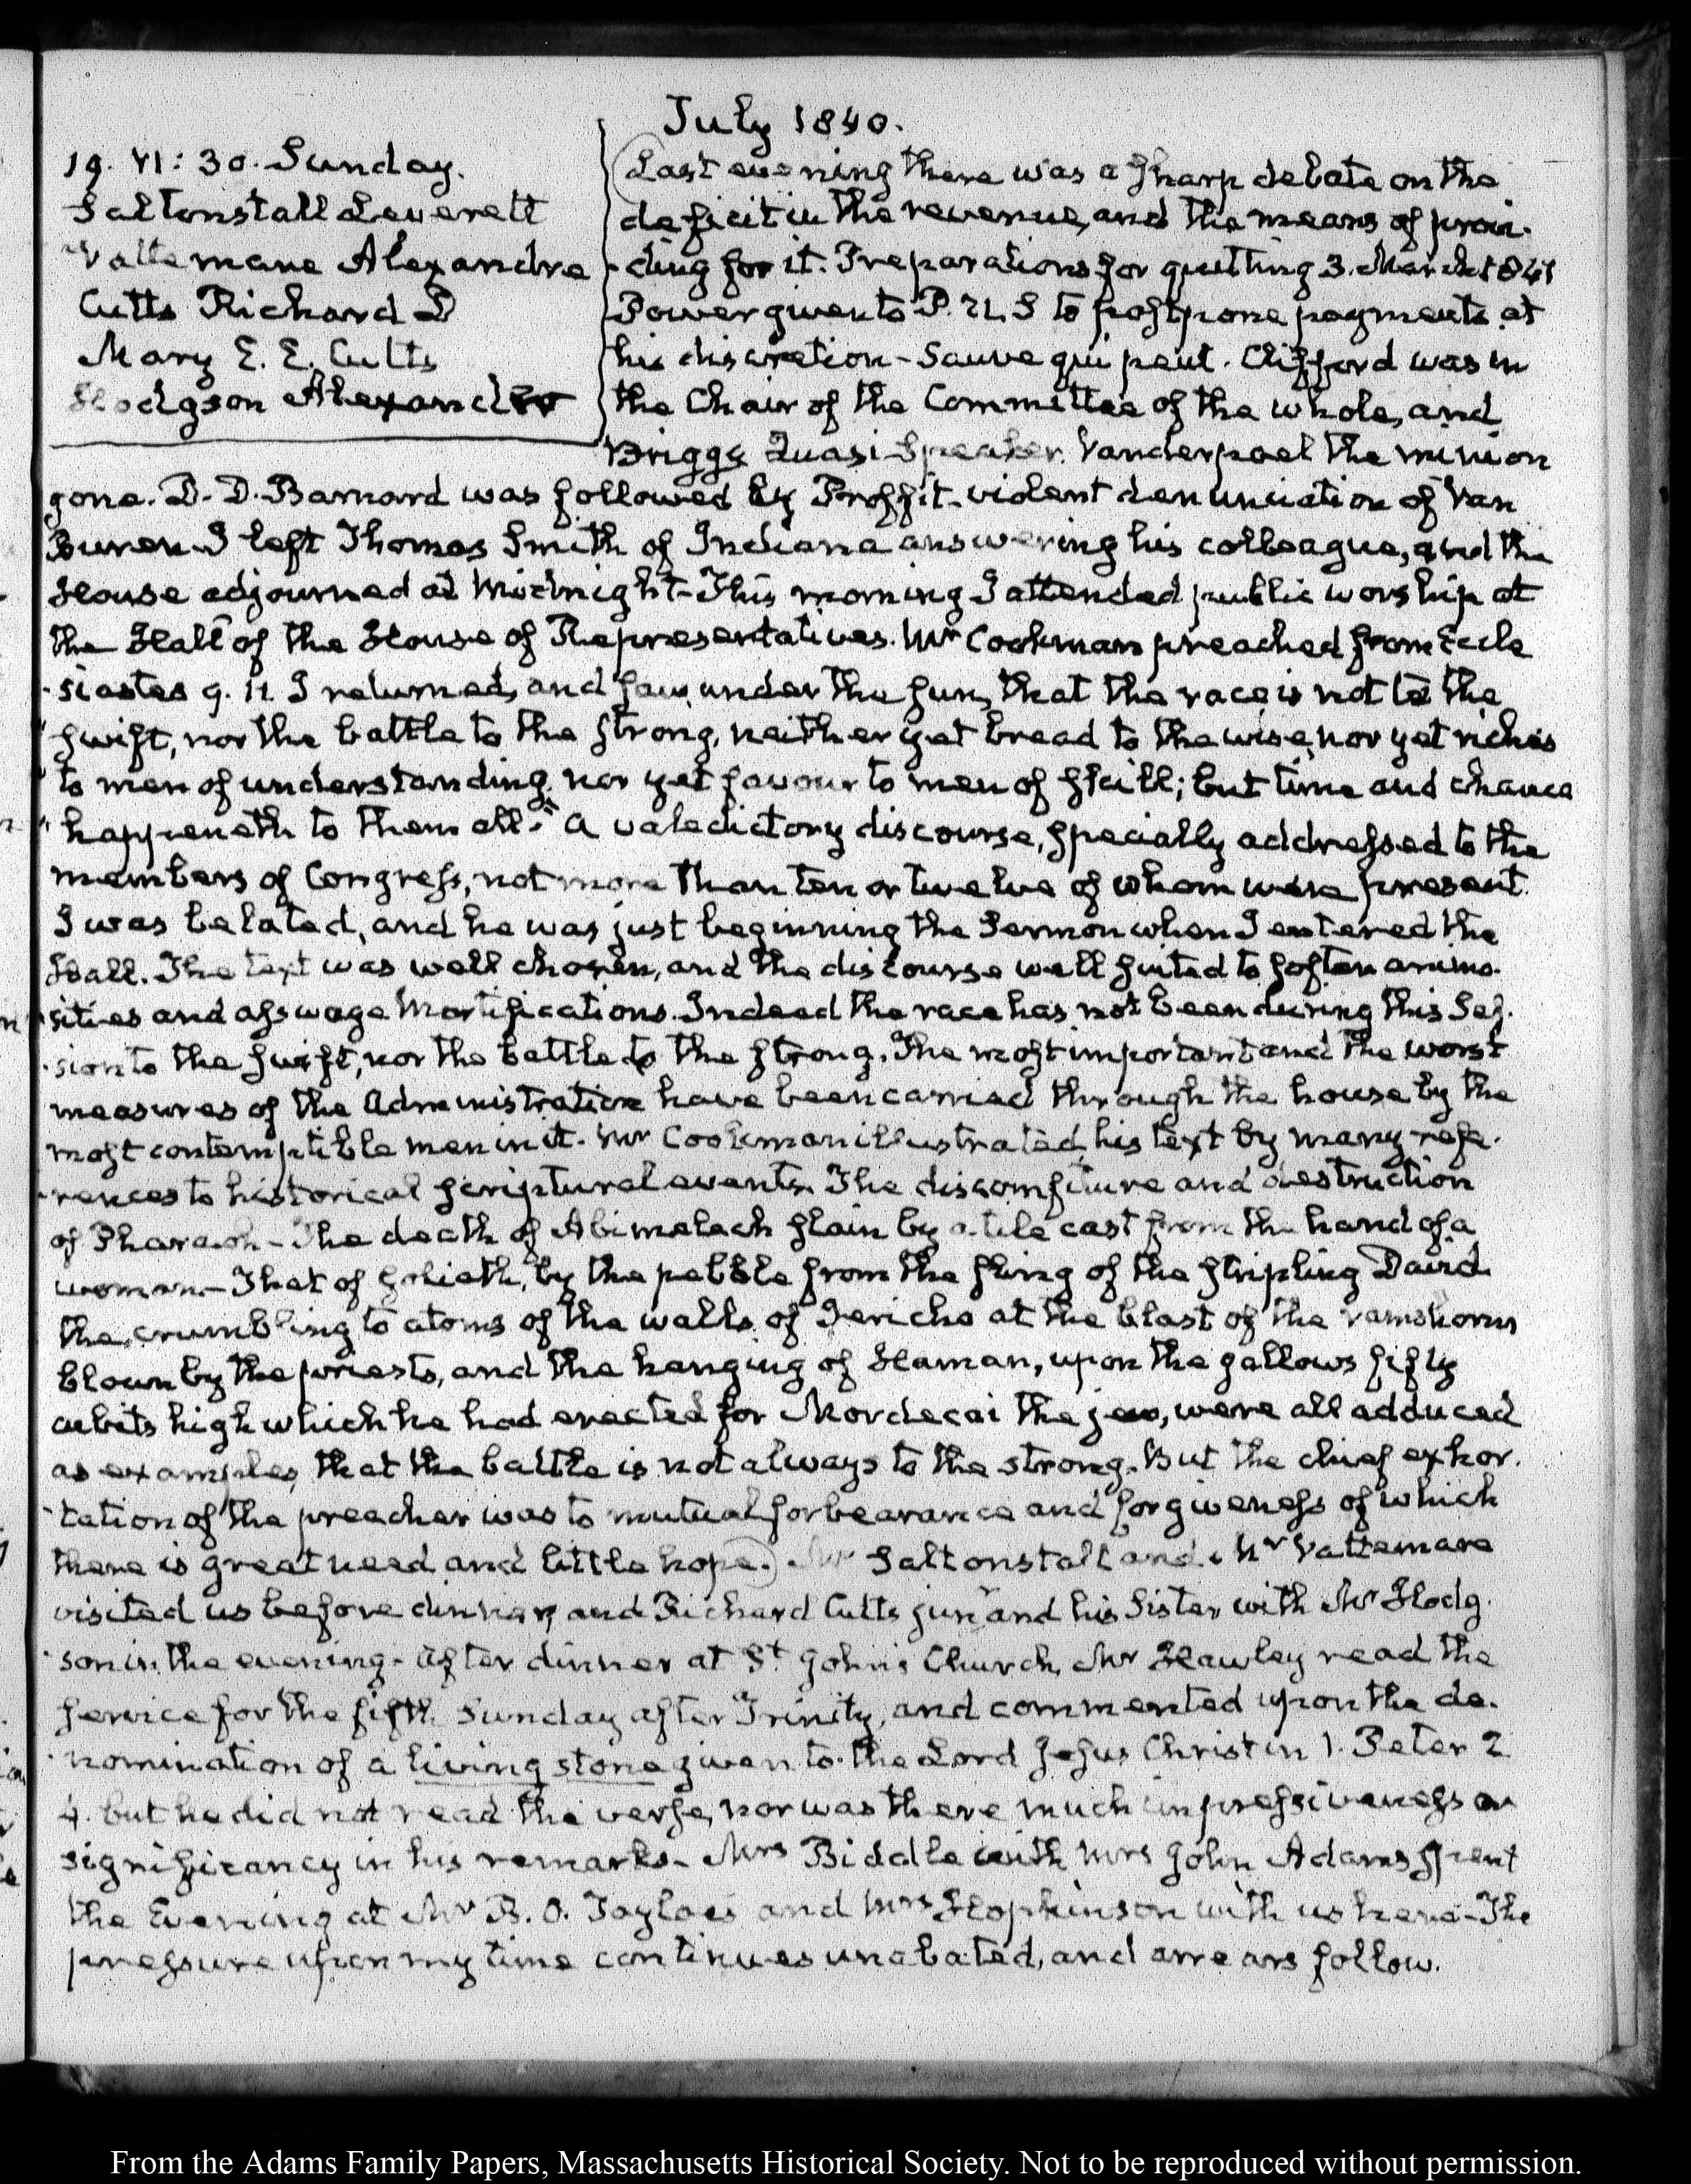 July 1840.
19. VI: 30. Sunday.
Saltonstall Leverett
Vattemare Alexandre
Cutts Richard D
Mary E. E. Cutts
Hodgson Alexander
Last evening there was a sharp debate on the
deficit in the revenue, and the means of provi-
-ding for it. Preparations for quitting 3. March 1841
Power given to P. U. S to postpone payments at
his discretion - Sauve qui peut. Clifford was in
the Chair of the Committee of the whole, and
Briggs Quasi Speaker. Vanderpoel the minion
gone. D. D. Barnard was followed by Proffit - violent denunciation of Van
Buren. I left Thomas Smith of Indiana answering his colleague, and the
House adjourned at Midnight - This morning I attended public worship at
the Hall of the House of Representatives. Mr Cookman preached from Eccle
-siastes 9. 11. I returned, and saw under the sun, that the race is not to the
" swift, nor the battle to the strong, neither yet bread to the wise, nor yet riches
" to men of understanding, nor yet favour to men of skill; but time and chance
" happeneth to them all." A valedictory discourse, specially addressed to the
members of Congress, not more than ten or twelve of whom were present.
I was belated, and he was just beginning the Sermon when I entered the
Hall. The text was well chosen, and the discourse well suited to soften animo-
-sities and asswage Mortifications. Indeed the race has not been during this Ses-
-sion to the swift, nor the battle to the strong. The most important and the worst
measures of the Administration have been carried through the house by the
most contemptible men in it. Mr Cookman illustrated his text by many refe-
-rences to historical scriptural events. The discomfiture and destruction
of Pharaoh - The death of Abimelech slain by a tile cast from the hand of a
woman - That of Goliath, by the pebble from the sling of the stripling David
the crumbling to atoms of the walls of Jericho at the blast of the ramshorns
blown by the priests, and the hanging of Haman, upon the gallows fifty
cubits high which he had erected for Mordecai the jew, were all adduced
as examples, that the battle is not always to the strong. But the chief exhor-
-tation of the preacher was to mutual forbearance and forgiveness of which
there is great need and little hope. Mr Saltonstall and Mr Vattemare
visited us before dinner, and Richard Cutts junr and his Sister with Mr Hodg-
-son in the evening - After dinner at St John's Church, Mr Hawley read the
service for the fifth Sunday after Trinity, and commented upon the de-
-nomination of a living stone given to the Lord Jesus Christ in 1. Peter 2
4. but he did not read the verse, nor was there much impressiveness or
significancy in his remarks - Mrs Biddle with Mrs John Adams spent
the Evening at Mr B. O. Tayloe's and Mrs Hopkinson with us here - The
pressure upon my time continues unabated, and arrears follow.
From the Adams Family Papers, Massachusetts Historical Society. Not to be reproduced without permission.